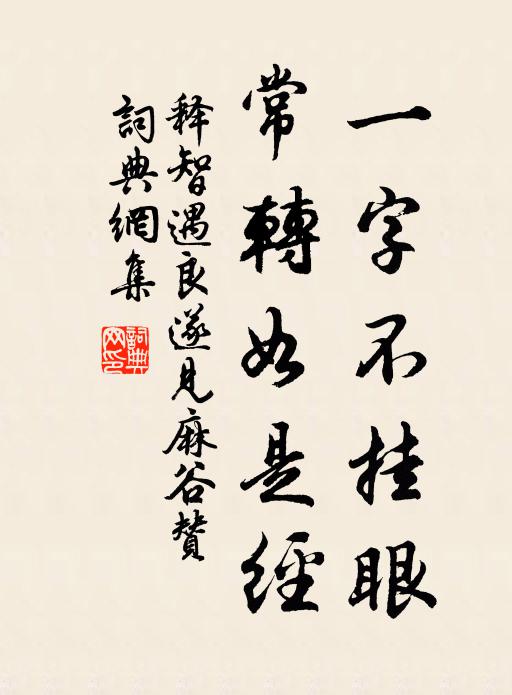 一字不挂眼
常轉如是經
释智遇良遂見麻谷贊
詞典網集
詞典
网印